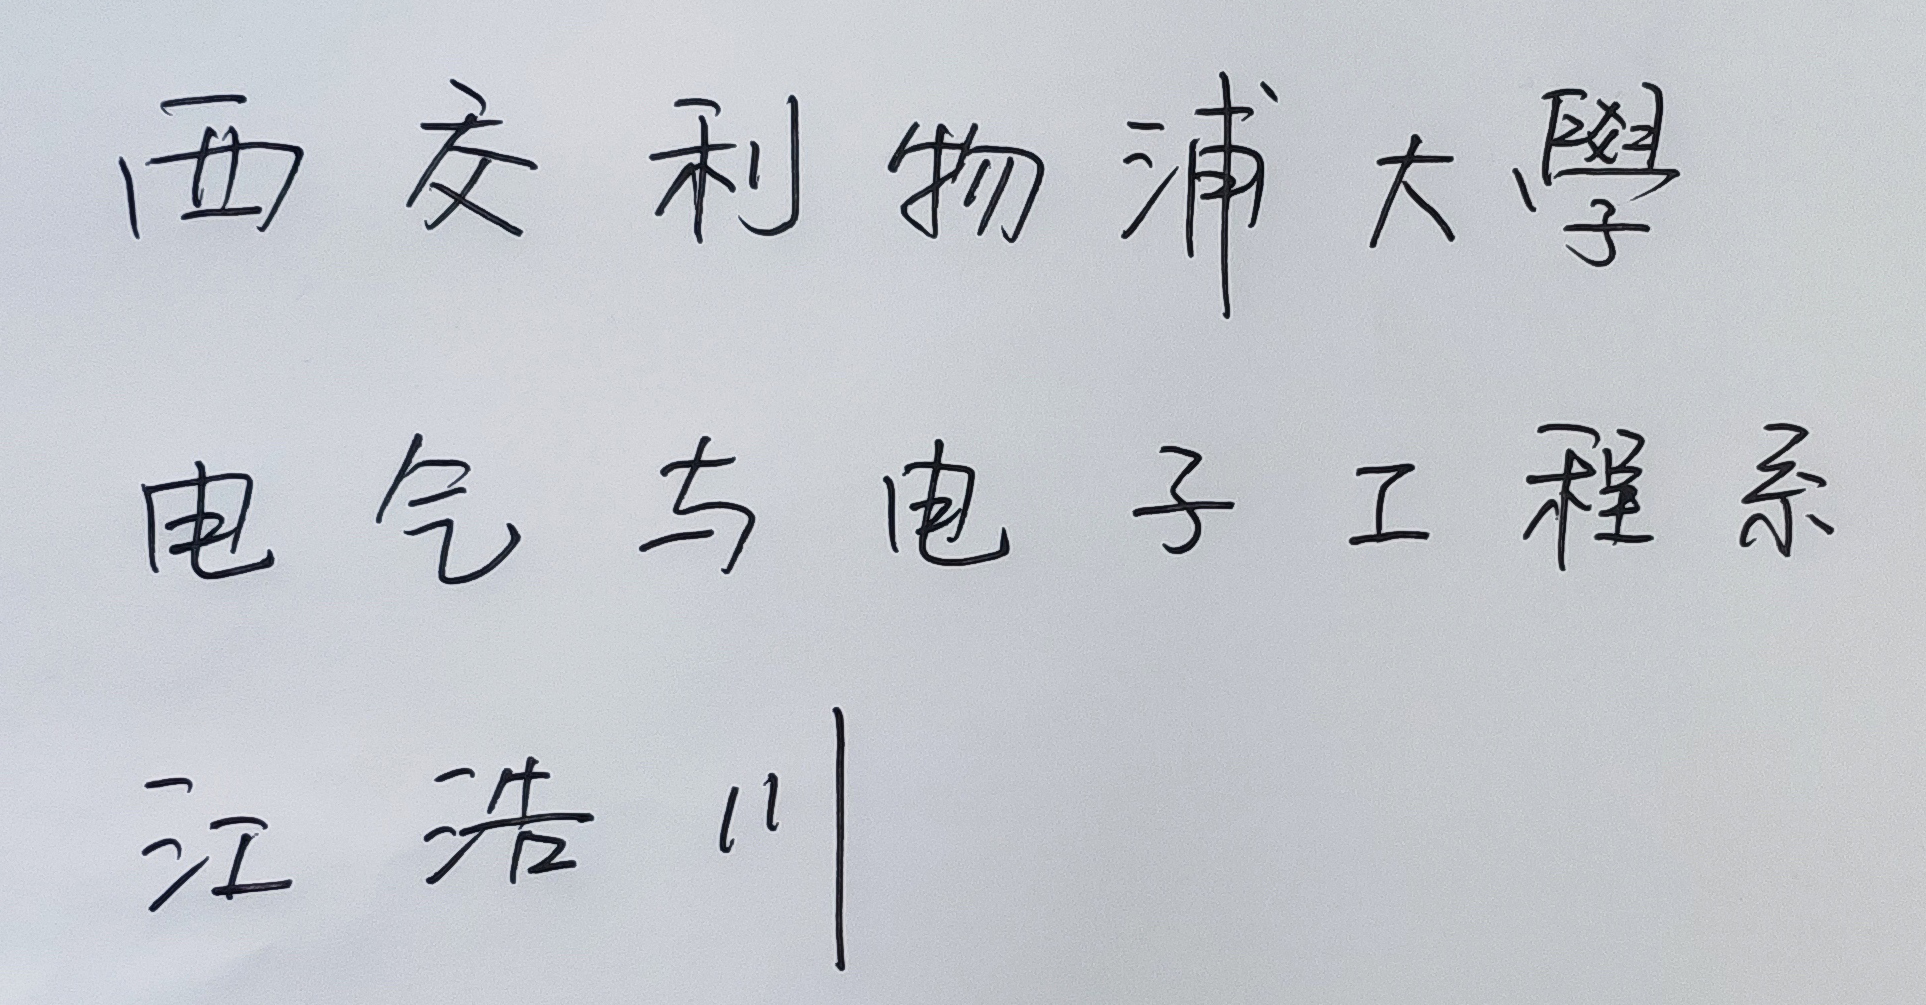 西交利物浦大學
电气与电子工程系
江浩川